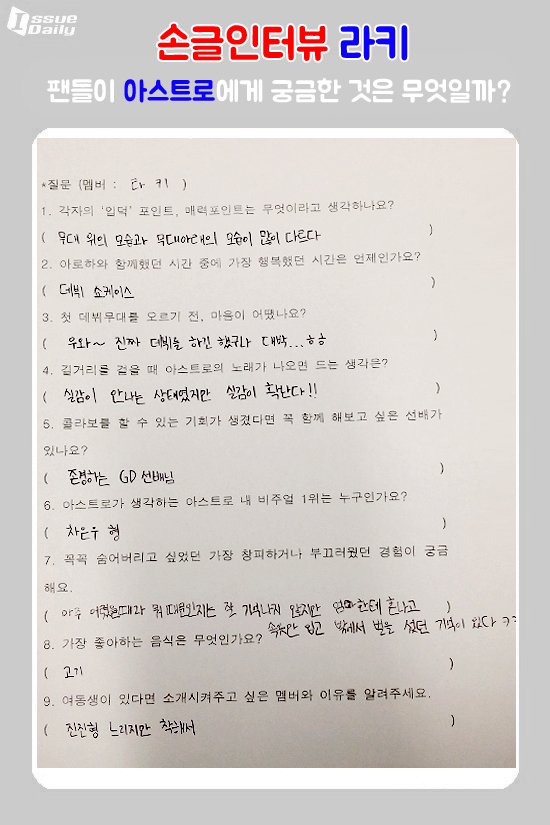 Issue
Daily
손글인터뷰 라키
팬들이 아스트로에게 궁금한 것은 무엇일까?
*질문 (멤버 : 라 키 )
1. 각자의 '입덕' 포인트, 매력포인트는 무엇이라고 생각하나요?
( 무대 위의 모습과 무대아래의 모습이 많이 다르다 )
2. 아로하와 함께했던 시간 중에 가장 행복했던 시간은 언제인가요?
( 데뷔 쇼케이스 )
3. 첫 데뷔무대를 오르기 전, 마음이 어땠나요?
( 우와~ 진짜 데뷔를 하긴 했구나 대박...ㅎㅎ )
4. 길거리를 걸을 때 아스트로의 노래가 나오면 드는 생각은?
( 실감이 안나는 상태였지만 실감이 확난다!! )
5. 콜라보를 할 수 있는 기회가 생겼다면 꼭 함께 해보고 싶은 선배가
있나요?
( 존경하는 GD 선배님 )
6. 아스트로가 생각하는 아스트로 내 비주얼 1위는 누구인가요?
( 차은우 형 )
7. 꼭꼭 숨어버리고 싶었던 가장 창피하거나 부끄러웠던 경험이 궁금
해요.
( 아주 어렸을때라 뭐 때문인지는 잘 기억나지 않지만 엄마한테 혼나고 )
속옷만 입고 밖에서 벌을 섰던 기억이 있다 ㅋㅋ
8. 가장 좋아하는 음식은 무엇인가요?
( 고기 )
9. 여동생이 있다면 소개시켜주고 싶은 멤버와 이유를 알려주세요.
( 진진형 느리지만 착해서 )